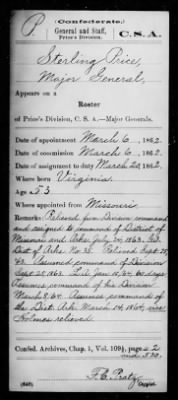 (Confederate.)
P
General and Staff,
Price's Division.
C. S. A.
Sterling Price,
Major General,
Appears on a
Roster
of Price's Division, C. S. A.—Major Generals.
Date of appointment March 6, 1862
Date of commission March 6, 1862
Date of assignment to duty March 22, 1862
Where born Virginia.
Age 53
Where appointed from Missouri
Remarks: Relieved from Division command
and assigned to command of District of
Missouri and Ark. July 24, 1863. S.O.
Dist. of Ark. No. 25. Relieved Sept. 25,
'63. Assumed command of Division
Sept. 25, 1863. Lv. Jan 10/64, 60 days.
Assumes command of his Division
March 8/64. Assumes command of
the Dist. Ark. March 24, 1864, vice
Holmes relieved
Confed. Archives, Chap. 1, Vol. 109½, page 22
and 530.
F. C. Pratz
(648)
Copyist.